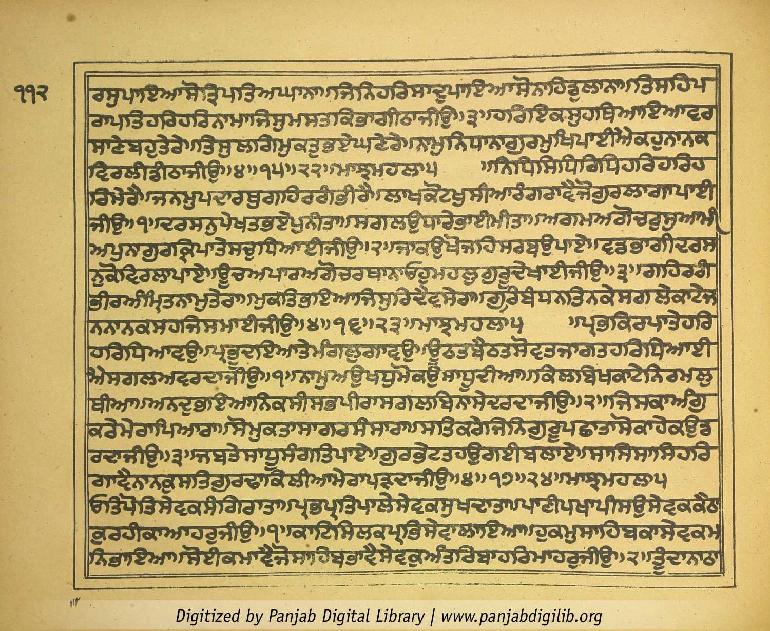 ੧੧੨
ਰਸੁਪਾਇਆਸੋਤ੍ਰਿਪਤਿਅਘਾਨਾ॥ਜਿਨਿਹਰਿਸਾਦੁਪਾਇਆਸੋਨਾਹਿਡੁਲਾਨਾ॥ਤਿਸਹਿਪ
ਰਾਪਤਿਹਰਿਹਰਿਨਾਮਾਜਿਸੁਮਸਤਕਿਭਾਗੀਠਾਜੀਉ॥੩॥ਹਰਿਇਕਸੁਹਥਿਆਇਆਵਰ
ਸਾਣੇਬਹੁਤੇਰੇ॥ਤਿਸੁਲਗਿਮੁਕਤੁਭਏਘਣੇਰੇ॥ਨਾਮੁਨਿਧਾਨਾਗੁਰਮੁਖਿਪਾਈਐਕਹੁਨਾਨਕ
ਵਿਰਲੀਡੀਠਾਜੀਉ॥੪॥੧੫॥੨੨॥ਮਾਝਮਹਲਾ੫ ॥ਨਿਧਿਸਿਧਿਰਿਧਿਹਰਿਹਰਿਹ
ਰਿਮੇਰੈ॥ਜਨਮੁਪਦਾਰਥੁਗਹਿਰਗੰਭੀਰੈ॥ਲਾਖਕੋਟਖੁਸੀਆਰੰਗਰਾਵੈਜੋਗੁਰਲਾਗਾਪਾਈ
ਜੀਉ॥੧॥ਦਰਸਨੁਪੇਖਤਭਏਪੁਨੀਤਾ॥ਸਗਲਉਧਾਰੇਭਾਈਮੀਤਾ॥ਅਗਮਅਗੋਚਰੁਸੁਆਮੀ
ਅਪੁਨਾਗੁਰਕਿਰਪਾਤੇਸਚੁਧਿਆਈਜੀਉ॥੨॥ਜਾਕਉਖੋਜਹਿਸਰਬਉਪਾਏ॥ਵਡਭਾਗੀਦਰਸ
ਨੁਕੋਵਿਰਲਾਪਾਏ॥ਊਚਅਪਾਰਅਗੋਚਰਥਾਨਾਓਹੁਮਹਲੁਗੁਰੂਦੇਖਾਈਜੀਉ॥੩॥ਗਹਿਰਗੰ
ਭੀਰਅੰਮ੍ਰਿਤਨਾਮੁਤੇਰਾ॥ਮੁਕਤਿਭਇਆਜਿਸੁਰਿਦੈਵਸੇਰਾ॥ਗੁਰਿਬੰਧਨਤਿਨਕੇਸਗਲੇਕਾਟੇਜ
ਨਨਾਨਕਸਹਜਿਸਮਾਈਜੀਉ॥੪॥੧੬॥੨੩॥ਮਾਝਮਹਲਾ੫ ॥ਪ੍ਰਭਕਿਰਪਾਤੇਹਰਿ
ਹਰਿਧਿਆਵਉ॥ਪ੍ਰਭੂਦਇਆਤੇਮੰਗਲੁਗਾਵਉ॥ਊਠਤਬੈਠਤਸੋਵਤਜਾਗਤਹਰਿਧਿਆਈ
ਐਸਗਲਅਵਰਦਾਜੀਉ॥੧॥ਨਾਮੁਅਉਖਧੁਮੋਕਉਸਾਧੂਦੀਆ॥ਕਿਲਬਿਖਕਾਟੇਨਿਰਮਲੁ
ਥੀਆ॥ਅਨਦੁਭਇਆਨਿਕਸੀਸਭਪੀਰਾਸਗਲਬਿਨਾਸੇਦਰਦਾਜੀਉ॥੨॥ਜਿਸਕਾਅੰਗੁ
ਕਰੇਮੇਰਾਪਿਆਰਾ॥ਸੋਮੁਕਤਾਸਾਗਰਸੰਸਾਰਾ॥ਸਤਿਕਰੇਜਿਨਿਗੁਰੂਪਛਾਤਾਸੋਕਾਹੇਕਉਡ
ਰਦਾਜੀਉ॥੩॥ਜਬਤੇਸਾਧੂਸੰਗਤਿਪਾਏ॥ਗੁਰਭੇਟਤਹਉਗਈਬਲਾਏ॥ਸਾਸਿਸਾਸਿਹਰਿ
ਗਾਵੈਨਾਨਕੁਸਤਿਗੁਰਢਾਕਿਲੀਆਮੇਰਾਪੜਦਾਜੀਉ॥੪॥੧੭॥੨੪॥ਮਾਝਮਹਲਾ੫
ਓਤਿਪੋਤਿਸੇਵਕਸੰਗਿਰਾਤਾ॥ਪ੍ਰਭਪ੍ਰਤਿਪਾਲੇਸੇਵਕਸੁਖਦਾਤਾ॥ਪਾਣੀਪਖਾਪੀਸਉਸੇਵਕਕੈਠਾ
ਕੁਰਹੀਕਾਆਹਰੁਜੀਉ॥੧॥ਕਾਟਿਸਿਲਕਪ੍ਰਭਿਸੇਵਾਲਾਇਆ॥ਹੁਕਮੁਸਾਹਿਬਕਾਸੇਵਕਮ
ਨਿਭਾਇਆ॥ਸੋਈਕਮਾਵੈਜੋਸਾਹਿਬਭਾਵੈਸੇਵਕੁਅੰਤਰਿਬਾਹਰਿਮਾਹਰੁਜੀਉ॥੨॥ਤੂੰਦਾਨਾਠਾ
Digitized by Panjab Digital Library | www.panjabdigilib.org